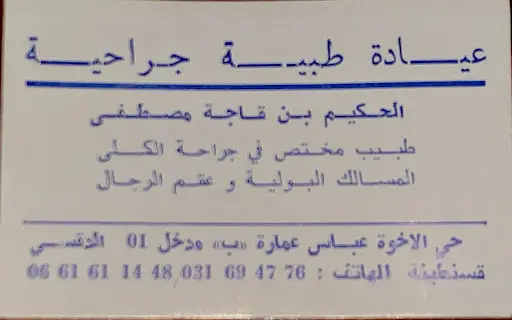 عيادة طبية جراحية
الحكيم بن قاجة مصطفى
طبيب مختص في جراحة الكلى
المسالك البولية و عقم الرجال
حي الاخوة عباس عمارة «ب» مدخل 01 الدقسي
قسنطينة الهاتف : 76 47 69 031/48 14 61 61 06